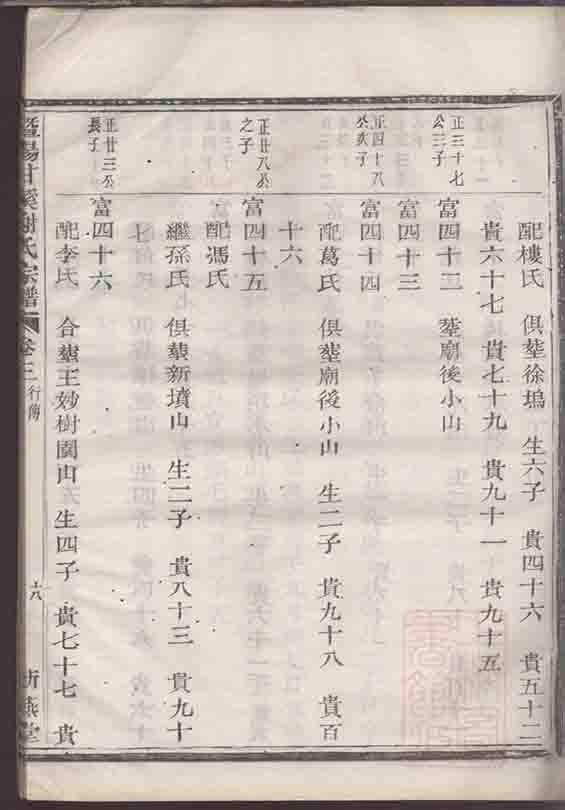 配樓氏　俱塟徐塢　生六子　貴四十六　貴五十二
貴六十七　貴七十九　貴九十一　貴九十五
正三十七公三子
富四十二　塟廟後小山
富四十三
正四十八公次子
富四十四
配葛氏　俱塟廟後小山　生二子　貴九十八　貴百
十六
正廿八公之子
富四十五
配馮氏
繼孫氏　俱塟新墳山　生二子　貴八十三　貴九十
七
正廿三公長子
富四十六
配李氏　合塟王妙樹園山　生四子　貴七十七　貴
暨陽甘溪謝氏宗譜　卷三　行傳　六